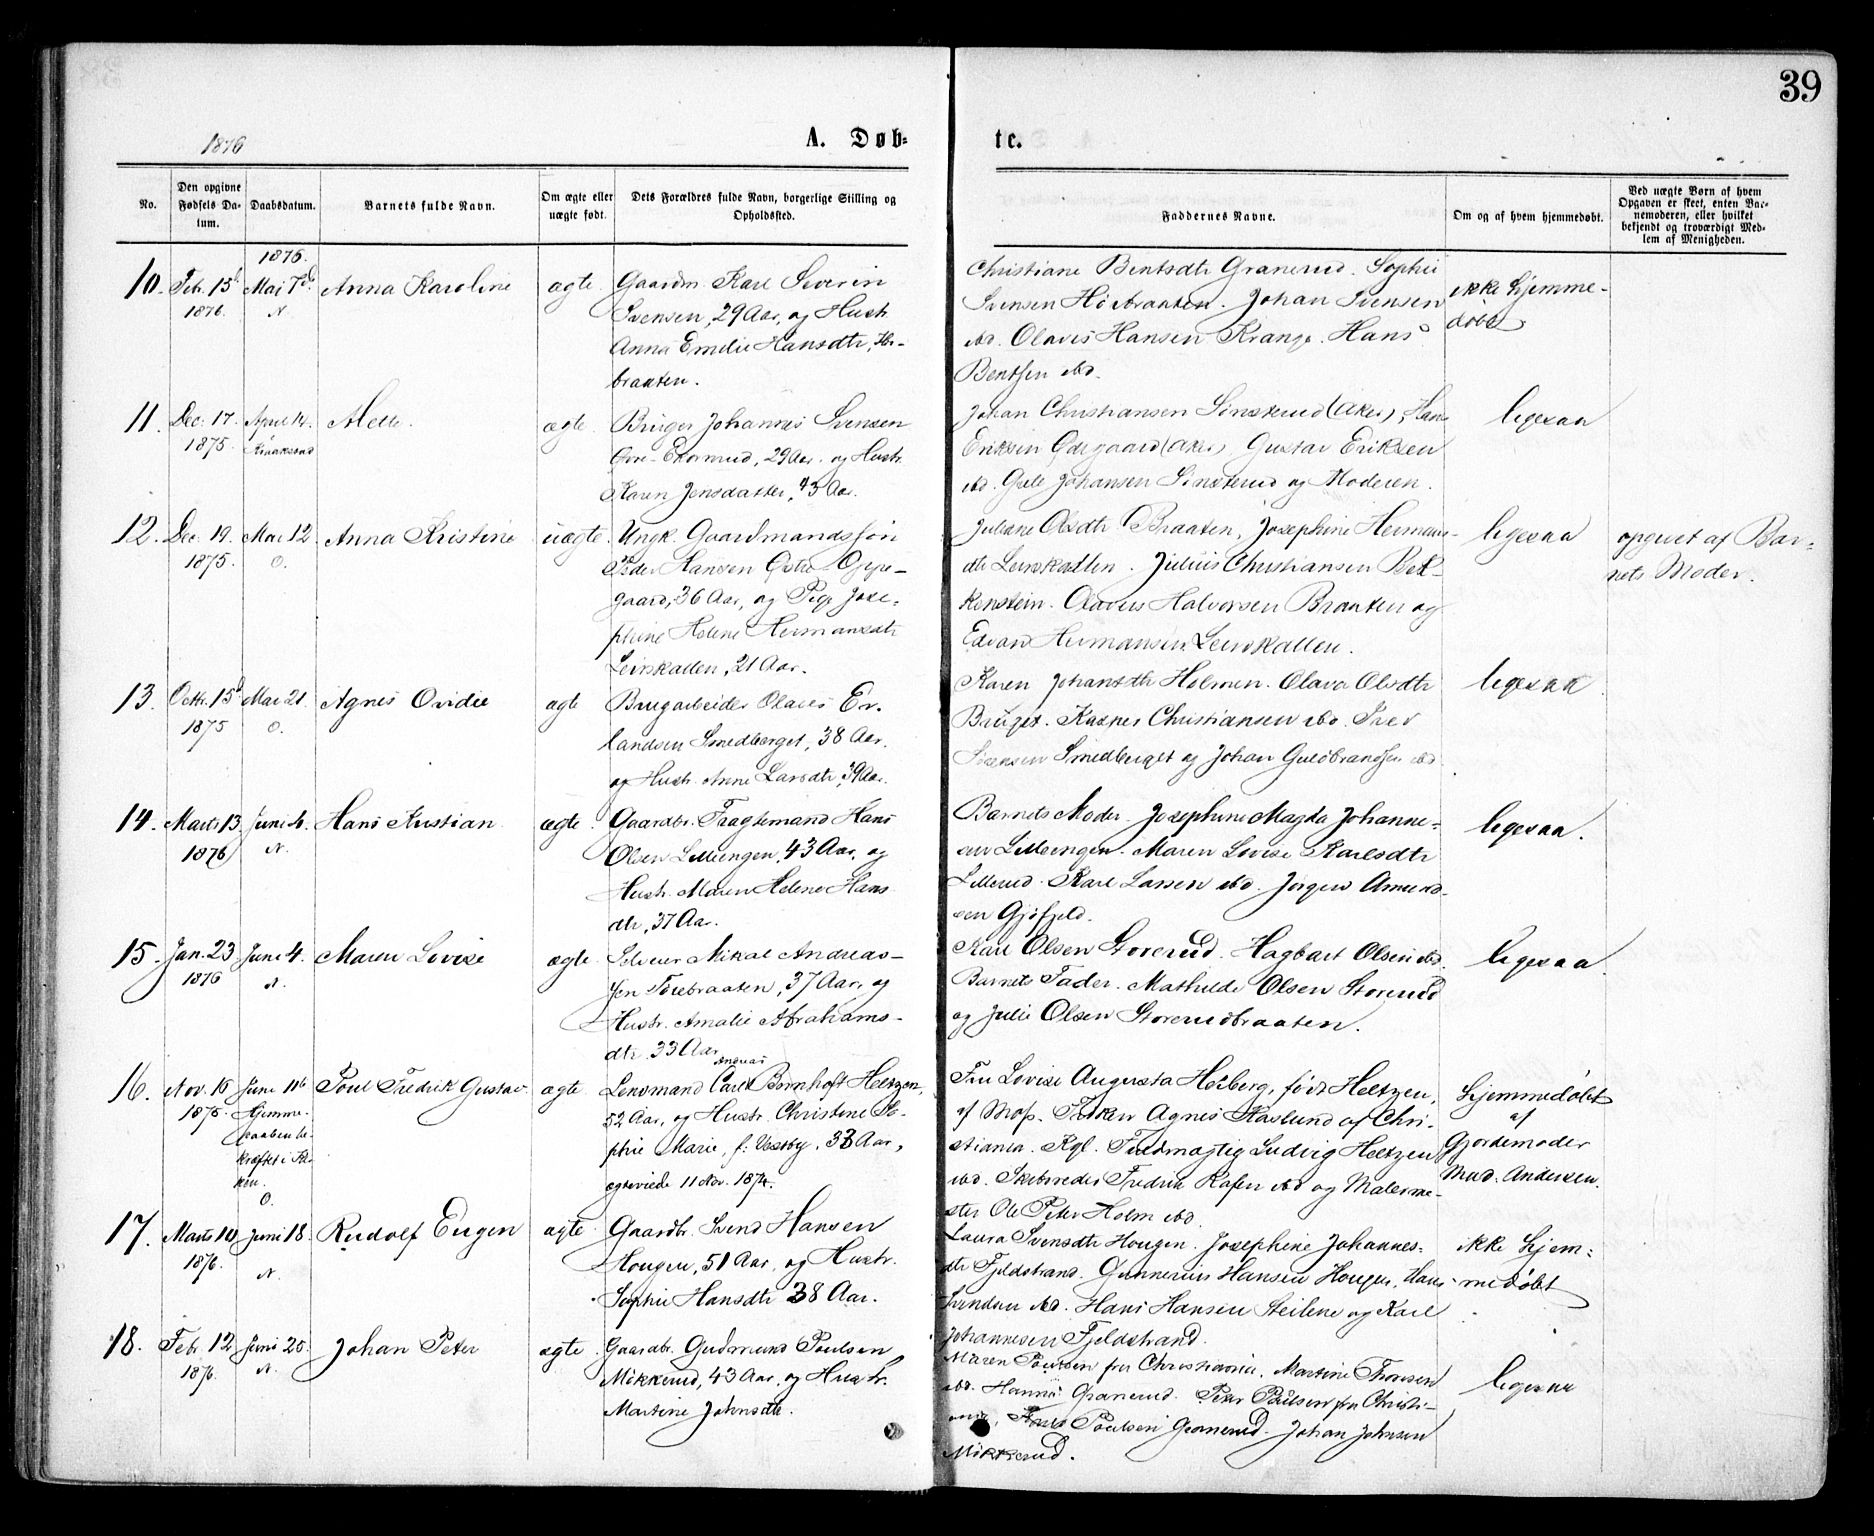 39
1876
A. Døb-
te.
No.
Den opgivne Fødsels Da-tum.
Daabsdatum.
Barnets fulde Navn.
Om ægte eller uægte født.
Dets Forældres fulde Navn, borgerlige Stilling og Opholdssted.
Faddernes Navne.
Om og af hvem hjemmedøbt.
Ved uægte Børn af hvem Opgaven er skeet, enten Bar-nemoderen, eller hvilket bekjendt og troværdigt Med-lem af Menigheden.
1876.
10. Feb. 15d Mai 7d Anna Karoline ægte Gaardm. Karl Severin
1876. N. Svensen, 29 Aar, og Hustr.
Anna Emilie Hansdtr,
braaten.
Christiane Bentsdtr Granerud. Sophie
Svensen Höibraaten. Johan Svensen
ibd. Olaves Hansen Krange. Hans
Bentsen ibd.
ikke hjemme-
döbt
11. Dec. 17 April 14. ægte Bruger Johannes Svensen
1875. Ekornrud, 29 Aar. og Hustr.
Karen Jensdatter, 43 Aar.
Johan Christiansen Sinsterud (Aker), Hans
Eriksen Ödegaard (Aker) Gustav Eriksen
ibd. Johansen Sinsterud og Moderen.
ligesaa
12. Dec. 19. Mai 12 Anna Kristine uægte. Ungk. Gaardmandssön
1875. O. Peder Hansen Östre Oppe-
gaard, 36 Aar, og Pige Jose-
phine Helene Hermansdtr
Leirskallen, 21 Aar.
Juliane Olsdtr Braaten, Josephine Hermans-
dtr Leirskallen. Julius Christiansen Bek-
kensteen. Olaves Halvorsen Braaten og
Edvard Hermansen Leirskallen.
ligesaa
opgivet af Bar-
nets Moder.
13. Octr. 15d Mai 21. Agnes Ovidie ægte Brugarbeider Olaves Er-
1875 O. landsen Smedberget, 38 Aar.
og Hustr. Anne Larsdtr, 39 Aar.
Karen Johansdtr Holmen. Olava Olsdtr
Bruget. Christiansen ibd.
Sörensen Smedberget og Johan Guldbrandsen ibd
ligesaa
14. Marts 13. Juni 4. Hans Kristian ægte. Gaardbr. Fragtemand Hans
1876 N. Olsen Lilleengen, 43 Aar, og
Hustr. Maren Helene Hans
dtr, 37 Aar.
Barnets Moder. Josephine Magda Johanne-
sen Lilleengen. Maren Lovise Karlsdtr
Lillerud. Karl Larsen ibd. Jörgen Amund-
sen Gjöfjeld.
ligesaa.
15. Jan. 23 Juni 4. Maren Lovise ægte. Selveier Mikal Andreas-
1876 N. sen Törebraaten, 37 Aar, og
Hustr. Amalie Abrahams-
dtr. 33 Aar
Karl Olsen Storerud. Hagbart Olsen ibd.
Barnets Fader. Mathilde Olsen Storerud
og Julie Olsen Storerudbraaten.
ligesaa.
16. Nov. 16 Juni Poul Fredrik Gustav ægte Lensmand Carl Bornhoft Heltzen,
1875. Hjemme- 52 Aar, og Hustr. Christine So-
daaben be- phie Marie, f: Vestby, 33 Aar,
kræftet i Kir- ægteviede 11 Nov. 1874.
ken.
O.
Fru Lovise Augusta Heiberg, född Heltzen,
af Moss. Fröken Agnes Haslund af Chri-
stiania. Kgl. Fuldmægtig Ludvig Heltzen
ibd. Skibsreder Fredrik ibd og Malerme-
ster Ole Peter Holm ibd.
Hjemmedöbt
af
Gjordemoder
Mad. Andersen.
17. Marts 10 Juni 18. Rudolf Eugen ægte Gaardbr. Svend Hansen
1876. N. Hougen, 51 Aar, og Hustr.
Sophie Hansdtr 38 Aar.
Laura Svensdtr Hougen. Josephine Johannes-
dtr Fjeldstrand. Gunnerius Hansen Hougen. Hans
Svendsen ibd. Hans Hansen Steilene og Karl
Johannesen Fjeldstrand.
ikke hjem-
medöbt
18. Feb. 12 Juni 25. Johan Peter ægte Gaardbr. Gudmund Poulsen
1876. N. Mikkerud, 43 Aar, og Hustr.
Martine Johnsdtr.
Maren Poulsen fra Christiania. Martine Thoresen
ibd. Granerud. Peter Poulsen fra Christi-
ania. Poulsen Granerud. Johan Johnsen
Mikkerud.
ligesaa